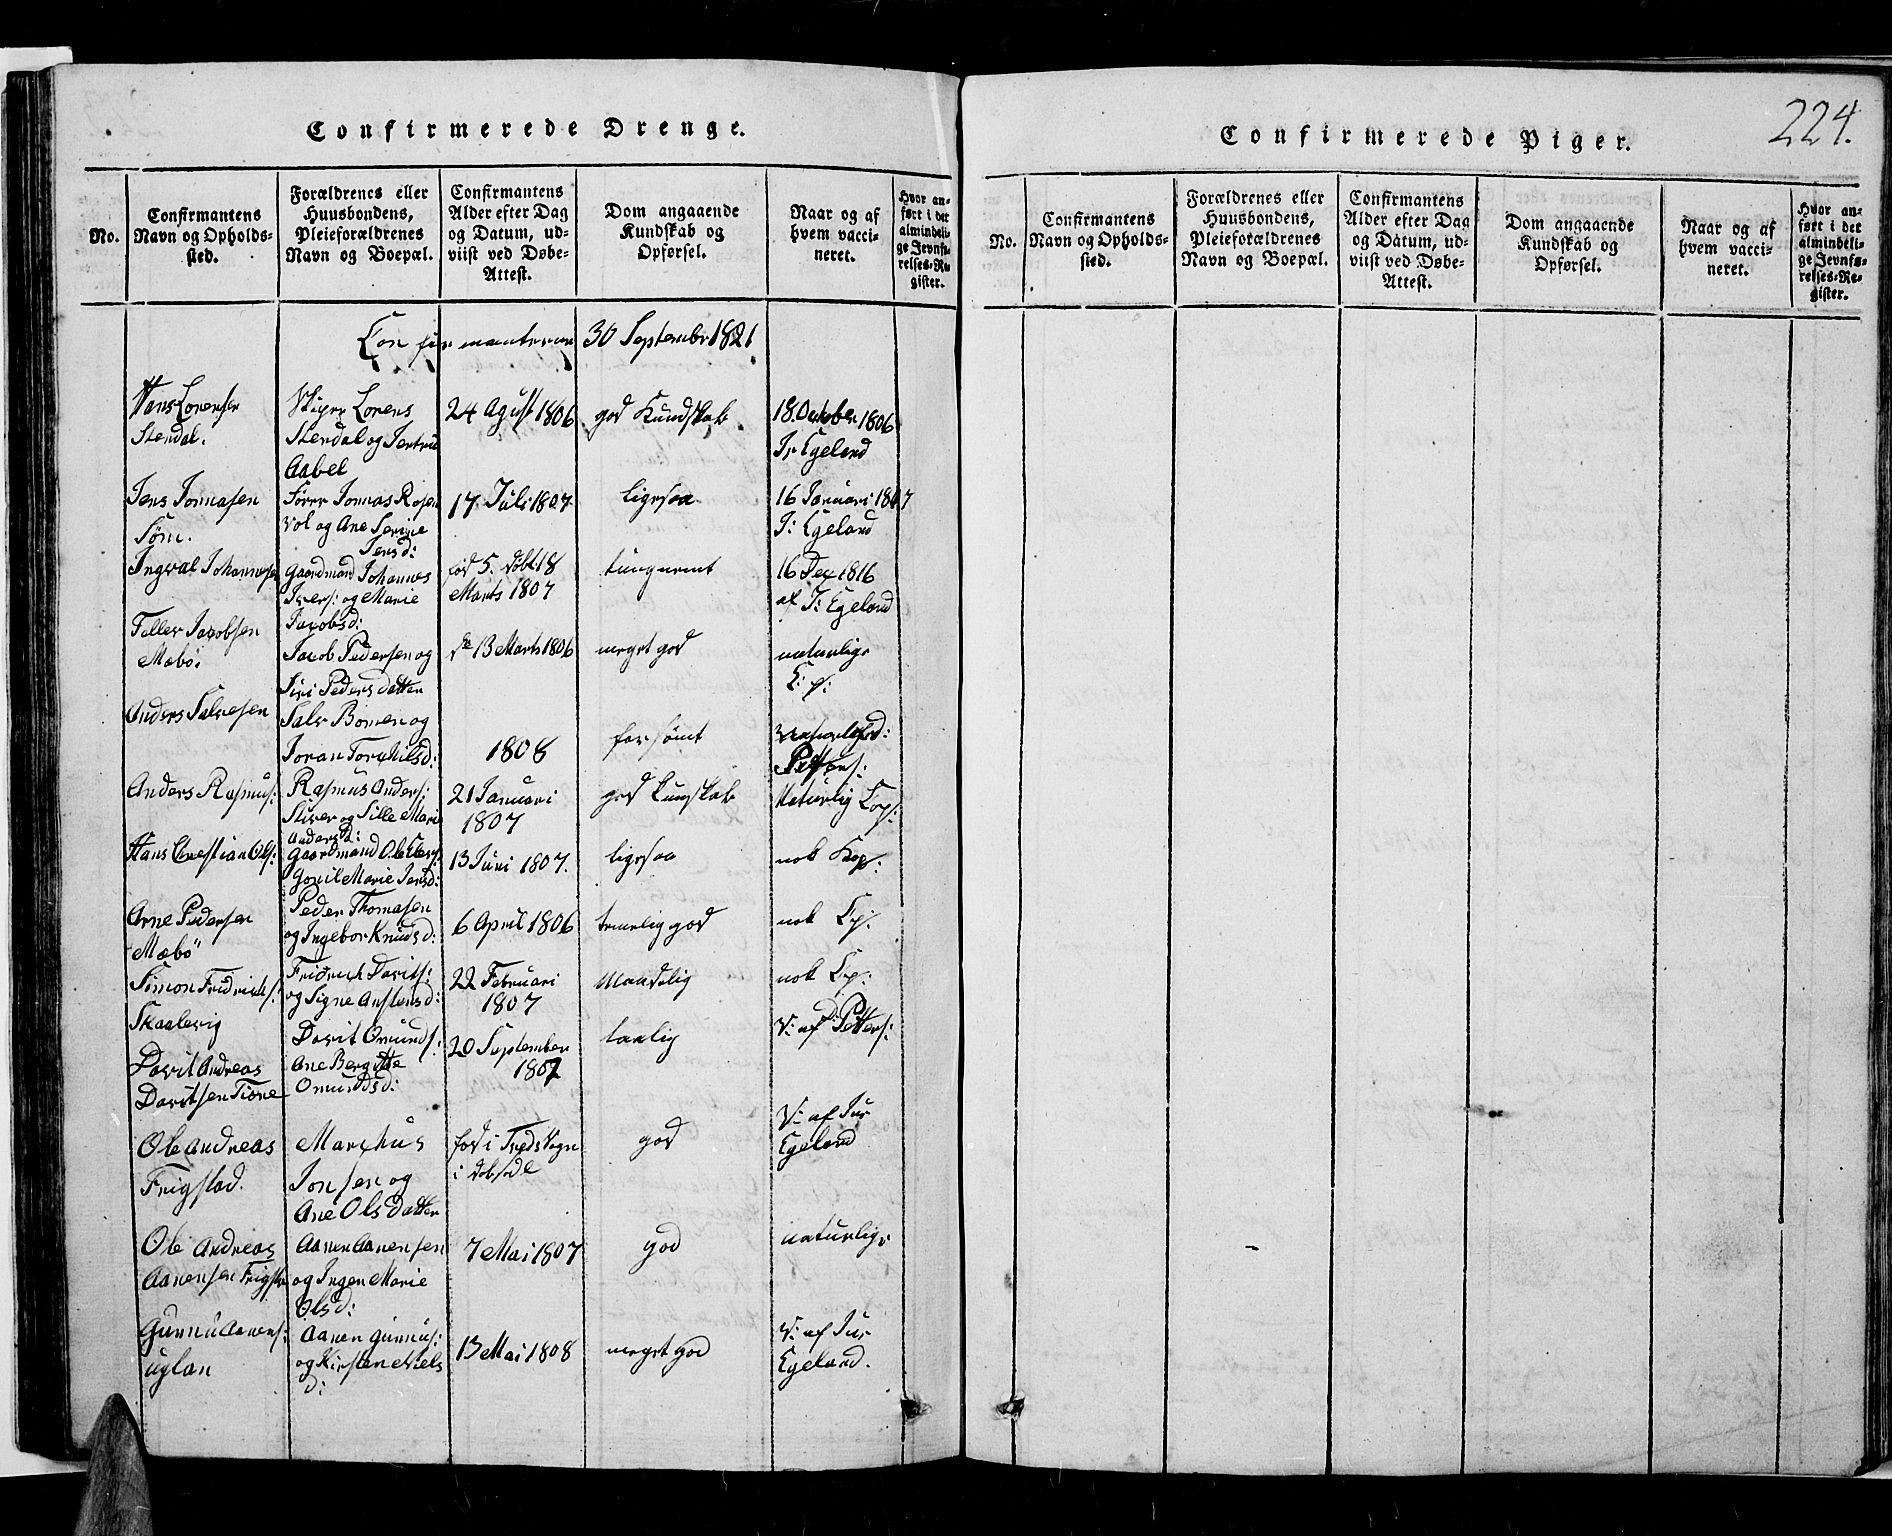 Confirmerede Drenge.
No.
Confirmantens
Navn og Opholds-
sted.
Forældrenes eller
Huusbondens,
Pleieforældrenes
Navn og Boepæl.
Confirmantens
Alder efter Dag
og Datum, ud-
viist ved Døbe-
Attest.
Dom angaaende
Kundskab og
Opførsel.
Naar og af
hvem vacci-
neret.
Hvor an-
ført i det
almindeli-
ge Jevnfø-
relses-Re-
gister.
30 September 1821
Hans Lorensen
Stendal.
Lorens
Stendal og
Aabel
24 Agust 1806
god Kundskab
18 October 1806
Jr Egeland
Jens Jonnasen
Søm.
Jonnas Rosen
vol og Ane
Jensd:
17 Juli 1807
ligesaa
16 Januari 1807
J: Egeland
Ingval Johannesen
Gaardmand Johannes
Ivers: og Marie
Jacobsd:
fød 5. døbt 18
Marts 1807
tungnemt
16 Dec 1816
af J: Egeland
Teller Jacobsen
Mæbø:
Jacob Pedersen og
Siri Pedersdatter
13 Marts 1806
meget god
naturlige
K: p:
Anders Salvesen
Salv Bomen og
Joran Torchilsd:
1808
forsømt
Petters:
Anders Rasmus:
Rasmus Anders:
og Sille Marie
Andersd:
21 Januari
1807
god kunskab
Naturlig Cop:
Hans Chrestian Ols:
Gaardmand Ole
Marie Jensd:
13 Juni 1807.
ligesaa
nok Kop:
Arne Pedersen
Mæbö
Peder Thomasen
og Ingebor Knudsd:
6 April 1806
temelig god
nok Cp:
Simon Fridrichs:
Skaalevig
Fridrich Davits:
og Signe Anstensd:
22 Februari
1807
Maadelig
nok Cp:
Davit Andreas
Davitsen Tiøne
Davit Omunds:
Ane Bergitte
Omundsd:
20 September
1807
taalig
V: af Petters:
Ole Andreas
Frigstad.
Marchus
Jonsen og
Ane Olsdatter
fød i
i
god
V: af Jur
Egeland
Ole Andreas
Aanensen Frigsta
Aanen Aanensen
og Ingen Marie
Olsd:
7 Mai 1807
god
naturlige
Gunnu Aanens:
uglan
Aanen Gunnus:
og Kirsten Niels
d:
13 Mai 1808
meget god
V: af Jur
Egeland.
Confirmerede Piger.
224.
No.
Confirmantens
Navn og Opholds-
sted.
Forældrenes eller
Huusbondens,
Pleieforældrenes
Navn og Boepæl.
Confirmantens
Alder efter Dag
og Datum, ud-
viist ved Døbe-
Attest.
Dom angaaende
Kundskab og
Opførsel.
Naar og af
hvem vacci-
neret.
Hvor an-
ført i det
almindeli-
ge Jevnfø-
relses-Re-
gister.